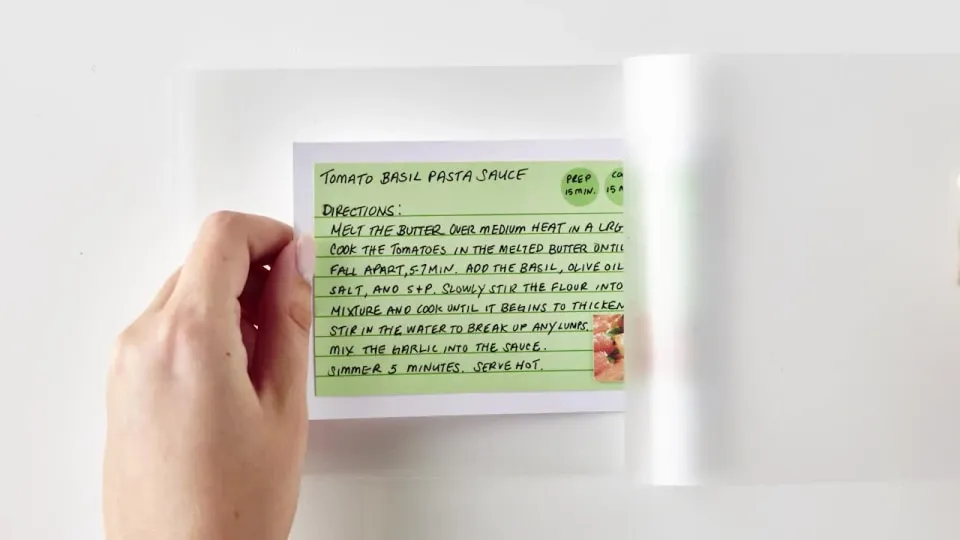 TOMATO BASIL PASTA SAUCE
PREP
15 MIN.
15
DIRECTIONS:
MELT THE BUTTER OVER MEDIUM HEAT IN A LRG
COOK THE TOMATOES IN THE MELTED BUTTER UNTIL
FALL APART, 5-7 MIN. ADD THE BASIL, OLIVE OIL
SALT, AND S+P. SLOWLY STIR THE FLOUR INTO
MIXTURE AND COOK UNTIL IT BEGINS TO THICKEN
STIR IN THE WATER TO BREAK UP ANY LUMPS.
MIX THE GARLIC INTO THE SAUCE.
SIMMER 5 MINUTES. SERVE HOT.